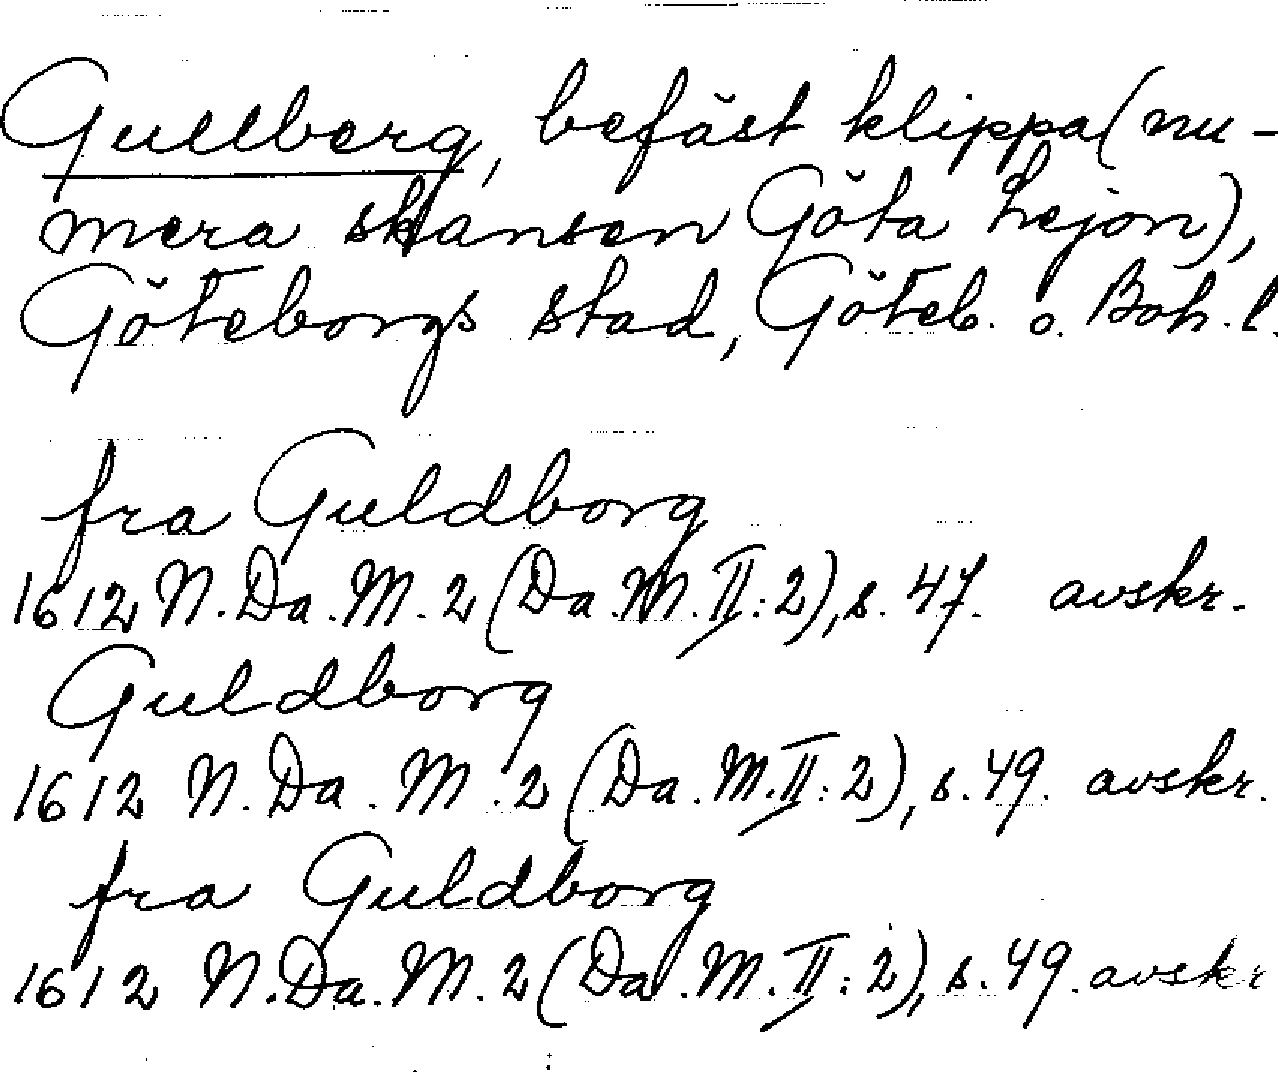 Gullberg, befäst klippa (nu-
mera skansen Göta Lejon),
Göteborgs stad, Göteb. o. Boh. l.
fra Guldborg
1612 N. Da. M. 2 (Da. M. II: 2), s. 47. avskr.
Guldborg
1612 N. Da. M. 2 (Da. M. II: 2), s. 49. avskr.
fra Guldborg
1612 N. Da. M. 2 (Da. M. II: 2), s. 49. avskr